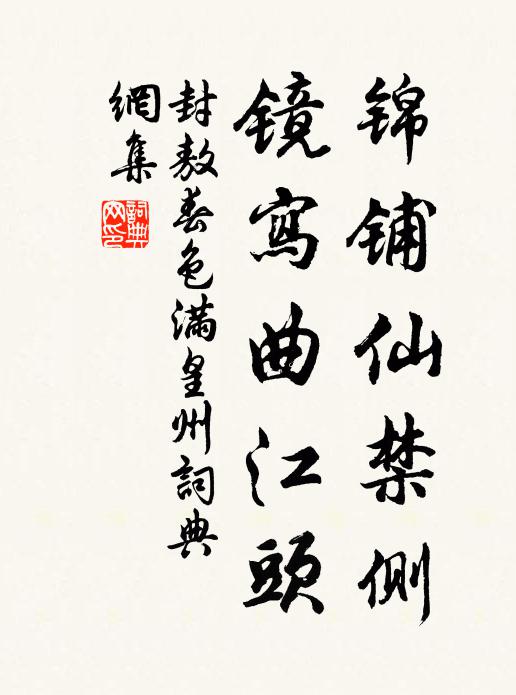 锦铺仙禁侧
镜寫曲江頭
封敖春色满皇州詞典
網集
詞典
网印